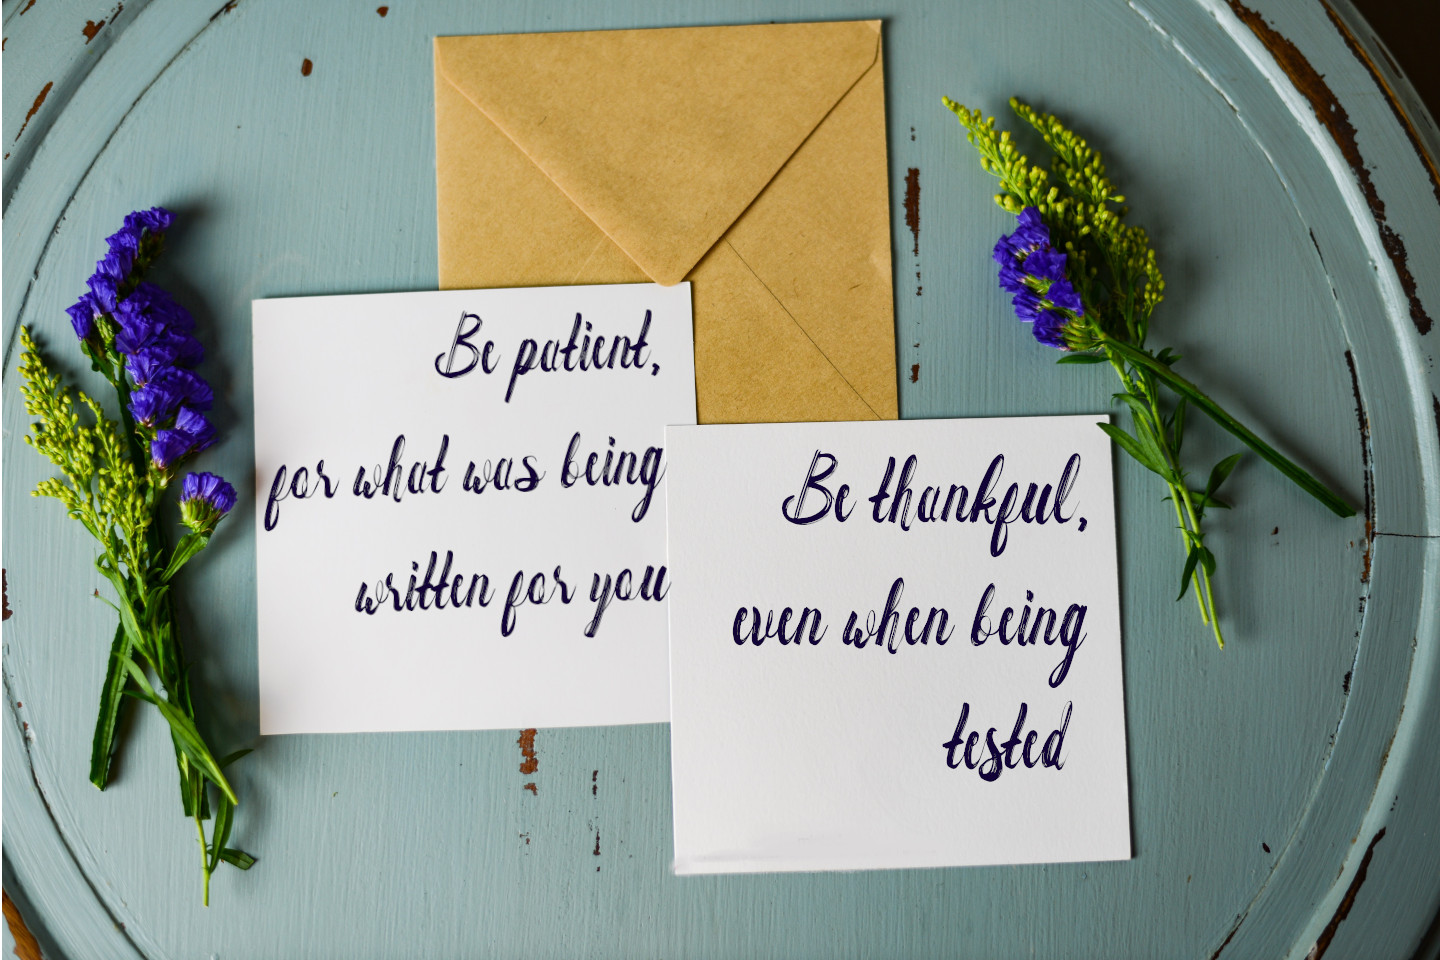 Be patient,
for what was being
written for you
Be thankful,
even when being
tested